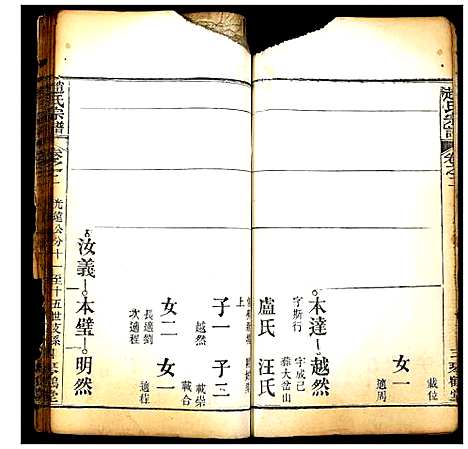 趙氏宗譜
卷之二
三琴鶴堂
女一
載位
適周
本達—越然
字斯行
字成已
葬大岔山
盧氏 汪氏
上
子一 子三
越然
載崇
載合
女二 女一
長適劉
次適程
適程
汝義—本璧—明然
趙氏宗譜
卷之二
光蓮公分十一至十五世支系
琴鶴堂